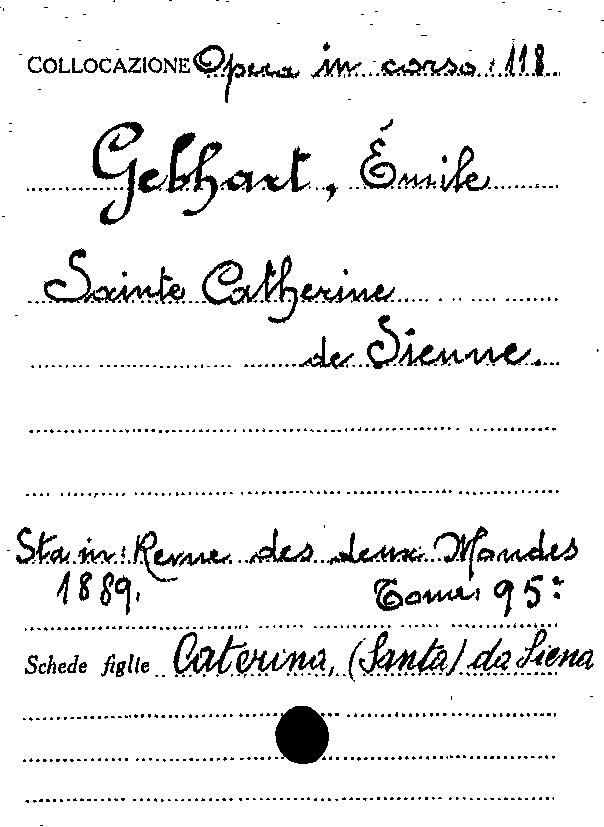 COLLOCAZIONE Opera in corso: 118
Gebhart, Émile
Sainte Catherine
de Sienne.
Sta in: Revue des deux Mondes
1889. Tome: 95:
Schede figlie Caterina, (Santa) da Siena